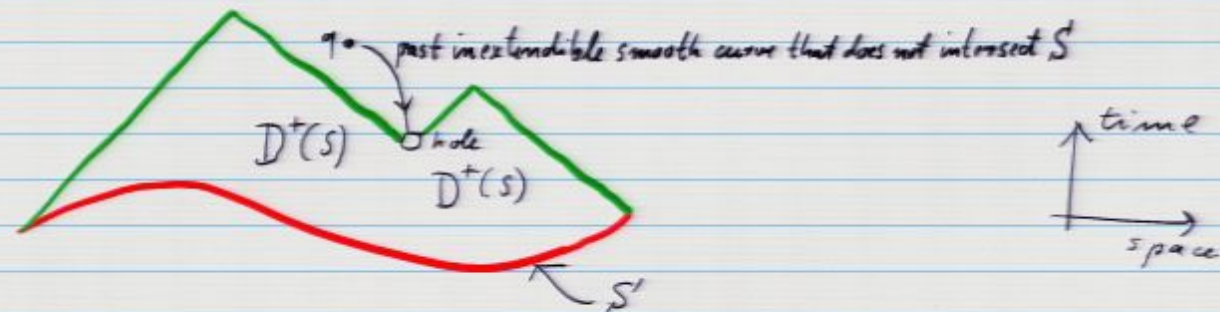 q• past inextendible smooth curve that does not intersect S
D⁺(S) hole
D⁺(S)
time
space
S